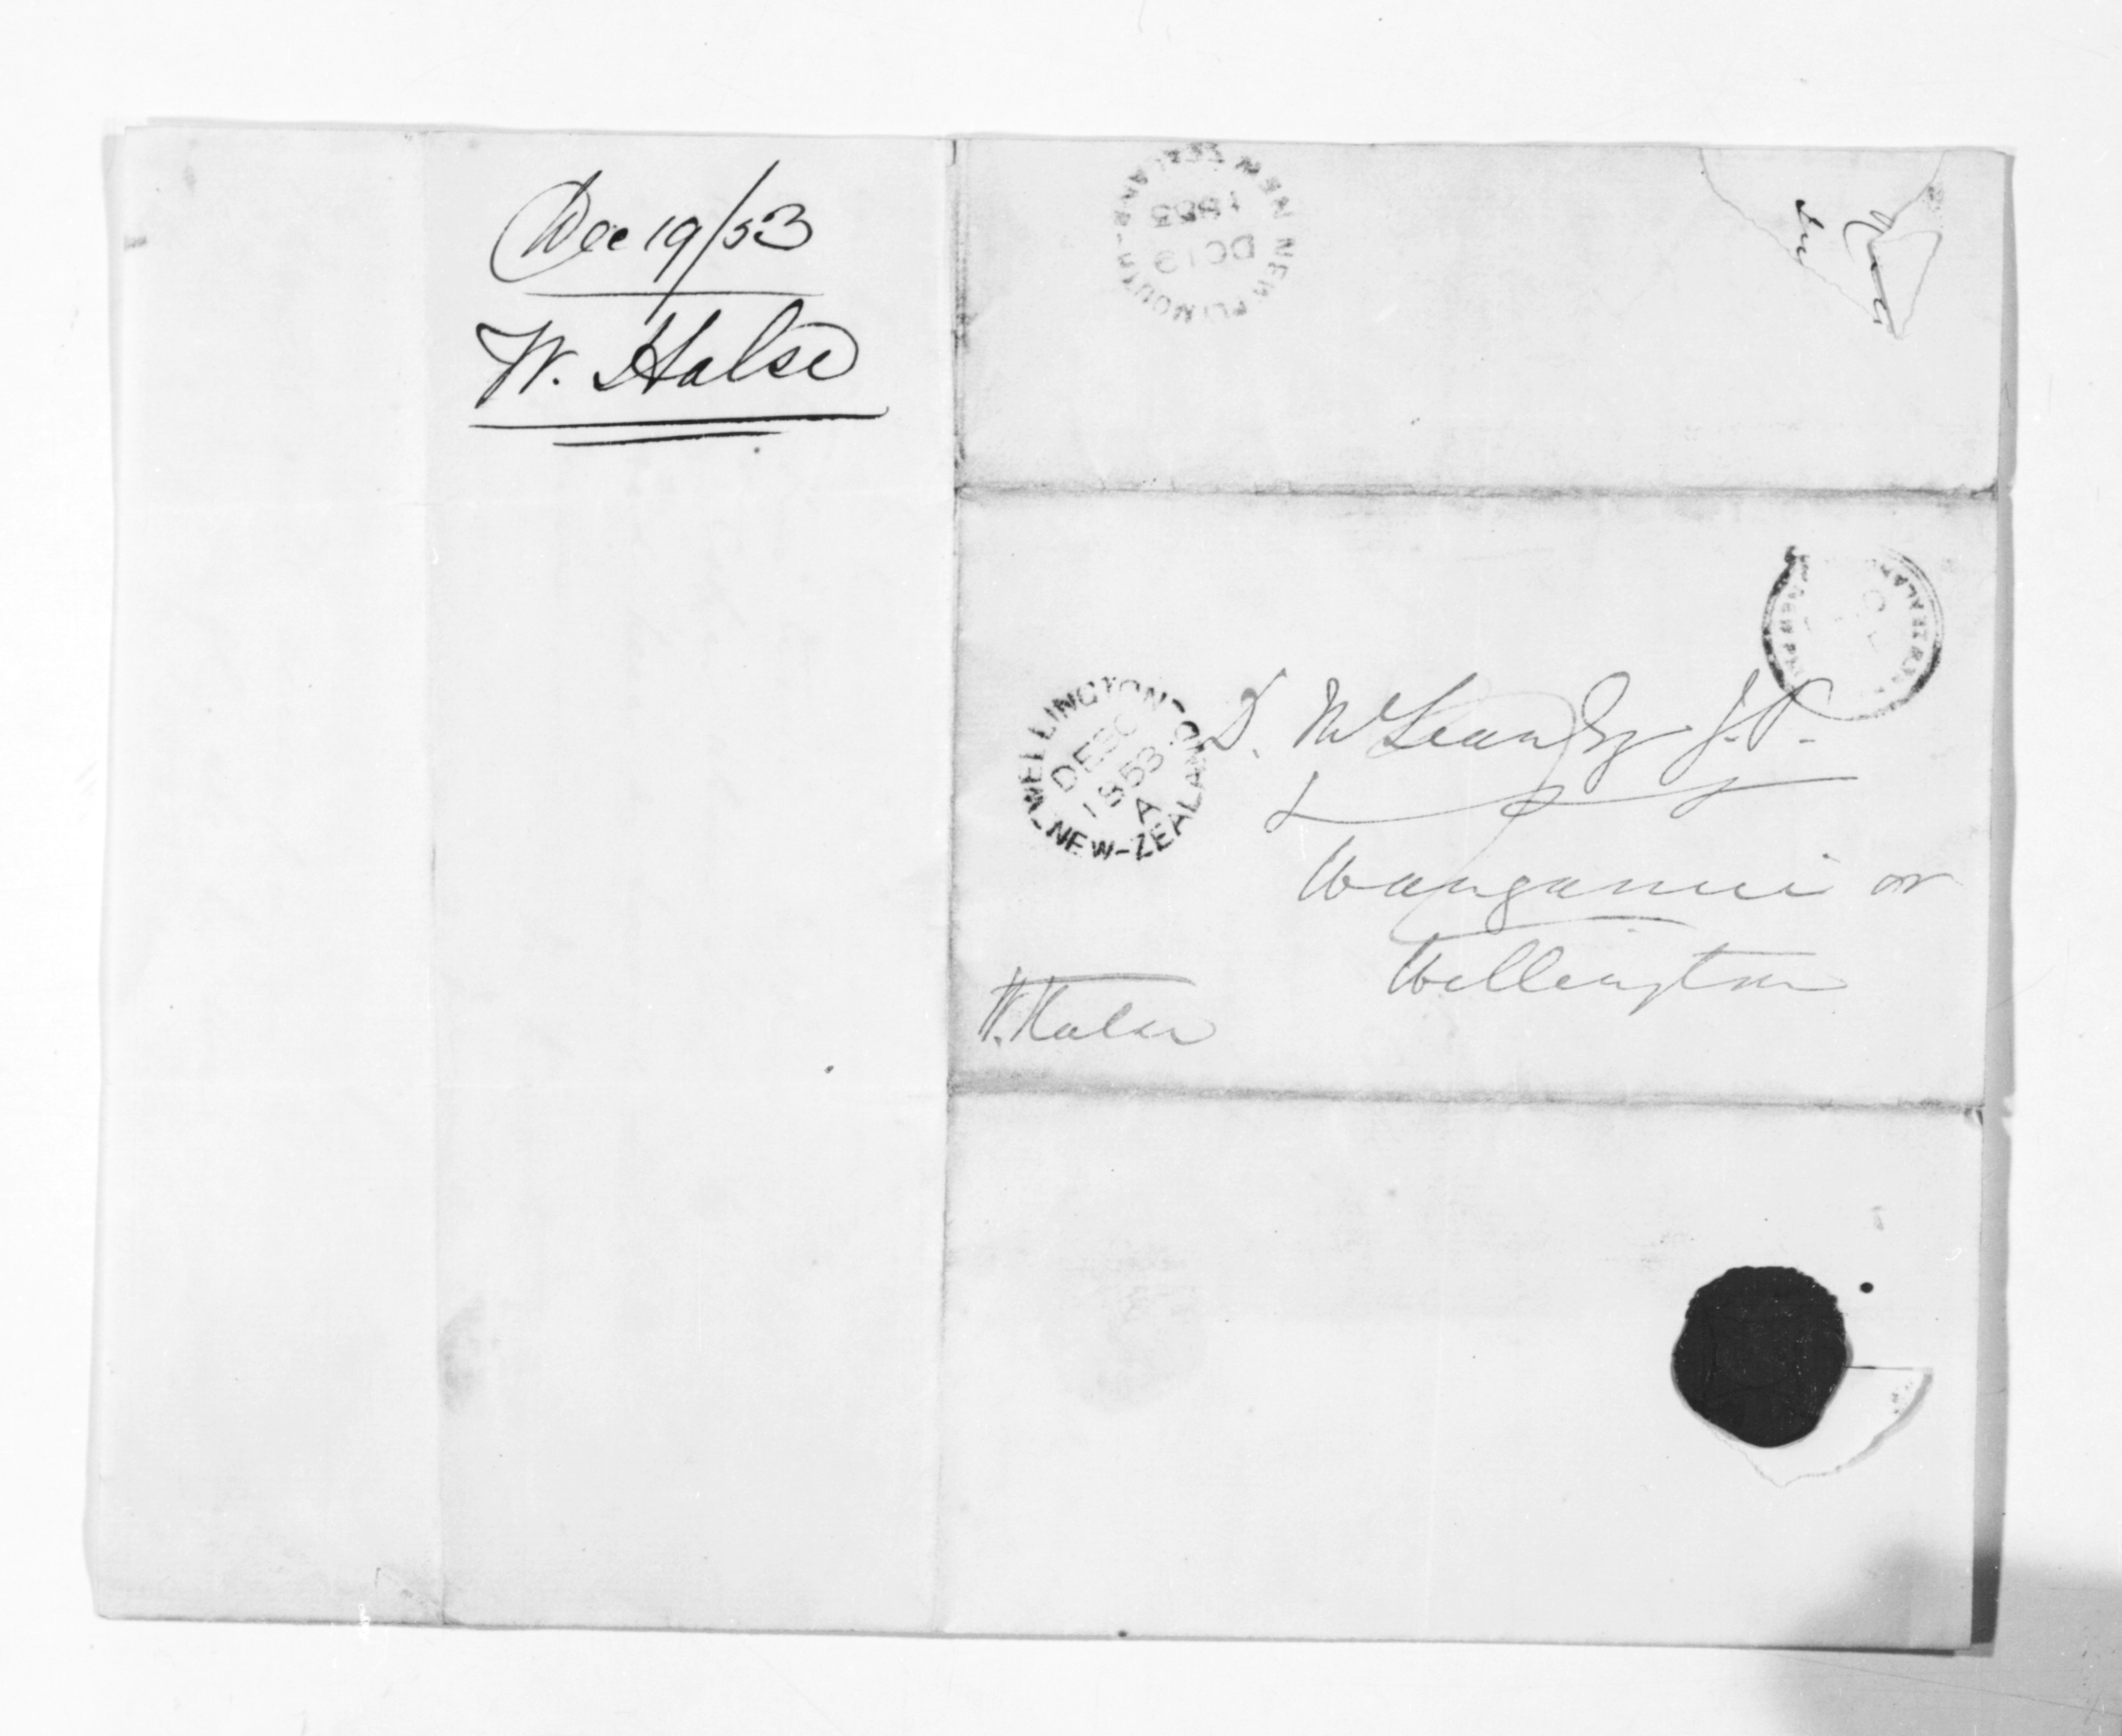 Dec 19/53
W. Halse
NEW PLYMOUTH - NEW ZEALAND
DC 19
1853
D. McLean Esqr J.P.
WELLINGTON - NEW-ZEALAND
1853
A
Wanganui or
Wellington
W. Halse